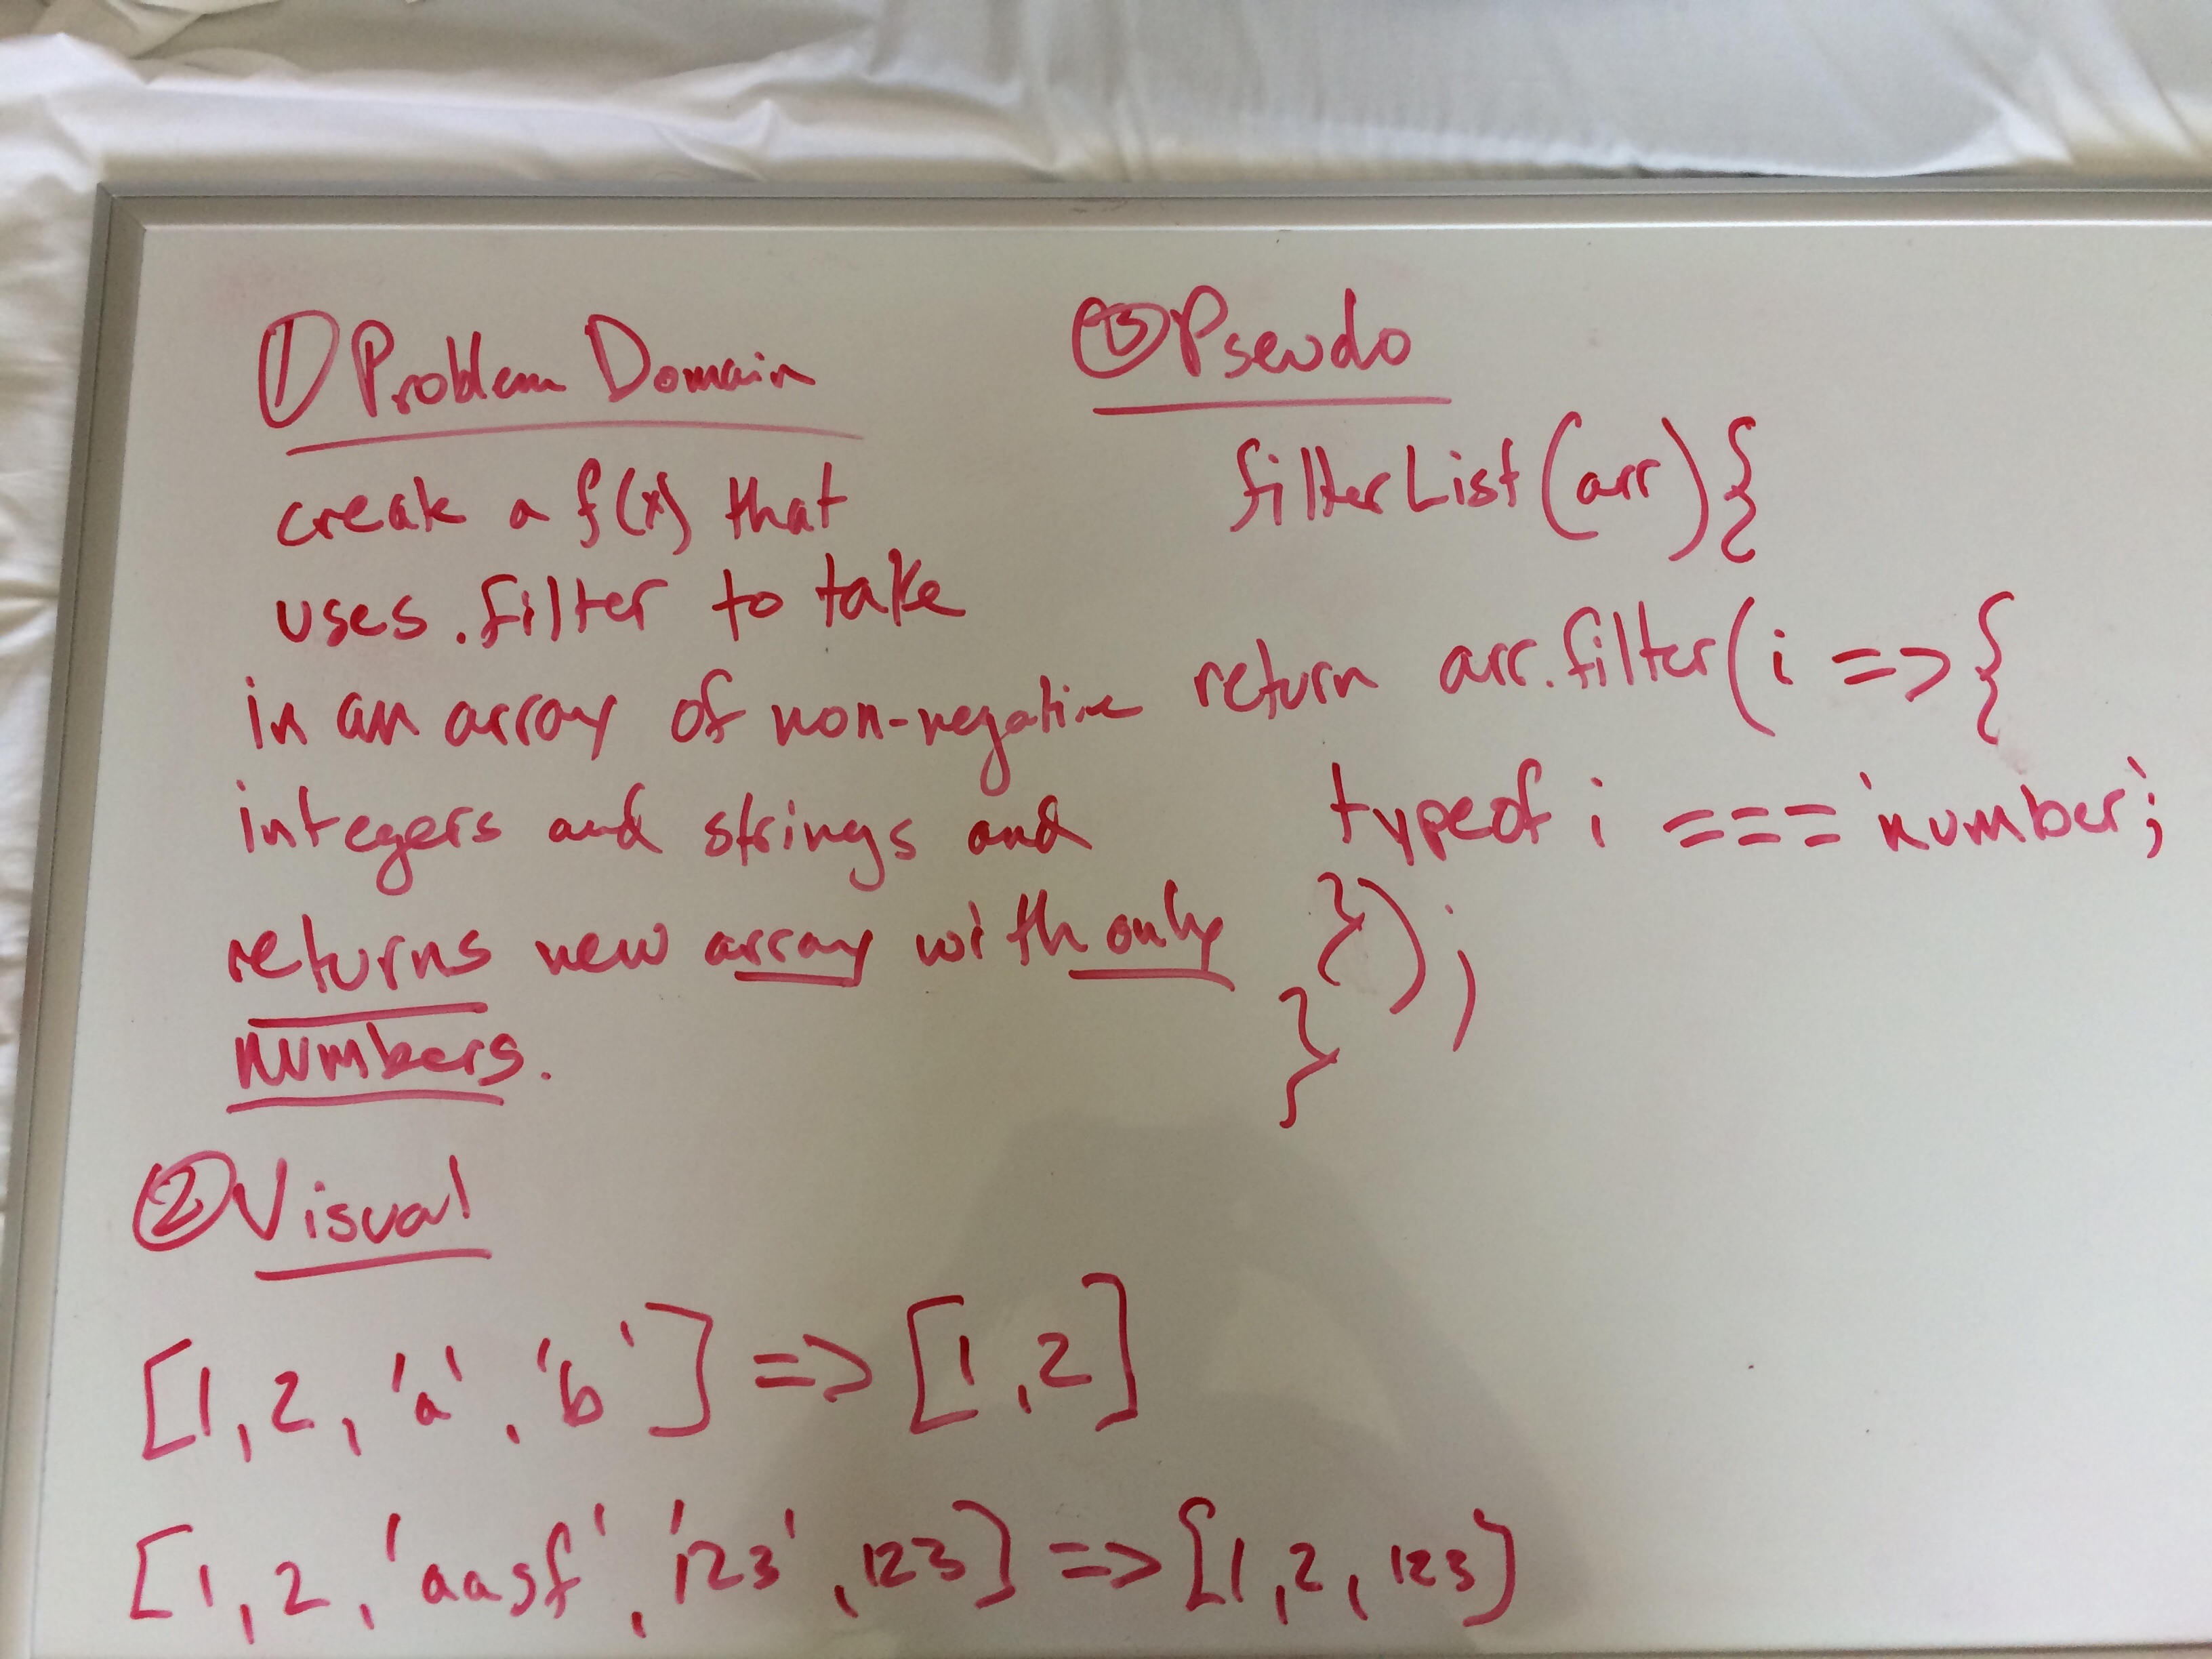 ① Problem Domain
create a f(x) that
uses .filter to take
in an array of non-negative
integers and strings and
returns new array with only
numbers.
② Visual
[1, 2, 'a', 'b'] => [1, 2]
[1, 2, 'aasf', '123', 123] => [1, 2, 123]
③ Pseudo
filterList(arr){
return arr.filter(i => {
typeof i === 'number';
});
}